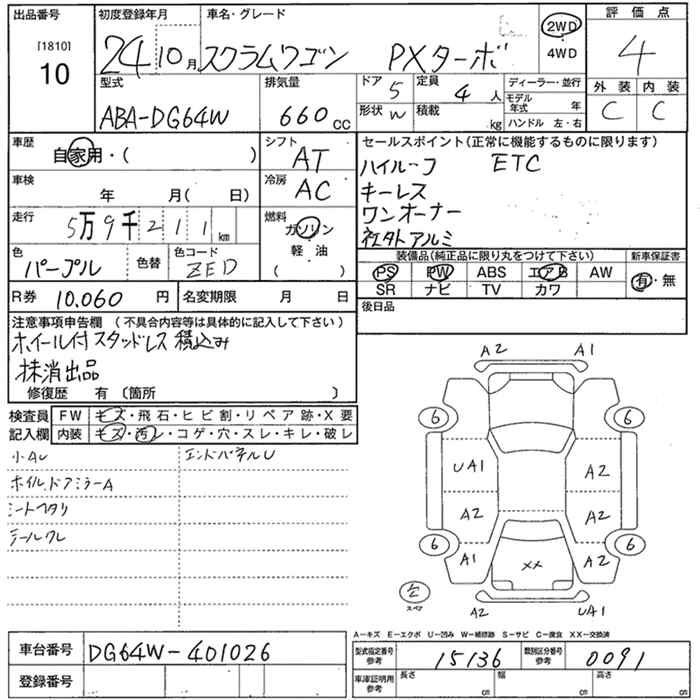 出品番号 初度登録年月 車名・グレード 2WD 評価点
[1810] 24 10月 スクラムワゴン PXターボ 4WD 4
10 型式 排気量 ドア 5 定員 4人 ディーラー・並行 外装 内装
ABA-DG64W 660cc 形状 W 積載 kg モデル年式 年 C C
ハンドル 左・右
車歴 自家用・( ) シフト AT セールスポイント(正常に機能するものに限ります)
車検 年 月( 日) 冷房 AC ハイルーフ ETC
キーレス
走行 5万9千211km 燃料 ガソリン ワンオーナー
色 パープル 色替 色コード ZED 軽油 社外アルミ
( ) 装備品(純正品に限り丸をつけて下さい) 新車保証書
PS PW ABS エアB AW 有・無
R券 10,060円 名変期限 月 日 SR ナビ TV カワ
注意事項申告欄(不具合内容等は具体的に記入して下さい) 後日品
ホイール付スタッドレス積込み
抹消出品
修復歴 有 〔箇所 〕
検査員 FW キズ・飛石・ヒビ割・リペア跡・X要
記入欄 内装 キズ・汚レ・コゲ・穴・スレ・キレ・破レ
小AU エンドパネルU
ホイル.ドアミラーA
シートヘタリ
テールワレ
A2 A1
6 6
UA1 A2
A2 A2
6 6
A1 XX A2
スペア
A2 UA1
A-キズ E-エクボ U-凹み W-補修跡 S-サビ C-腐食 XX-交換済
車台番号 DG64W-401026 型式指定番号 参考 15136 類別区分番号 参考 0091
登録番号 車庫証明用 参考 長さ cm 幅 cm 高さ cm